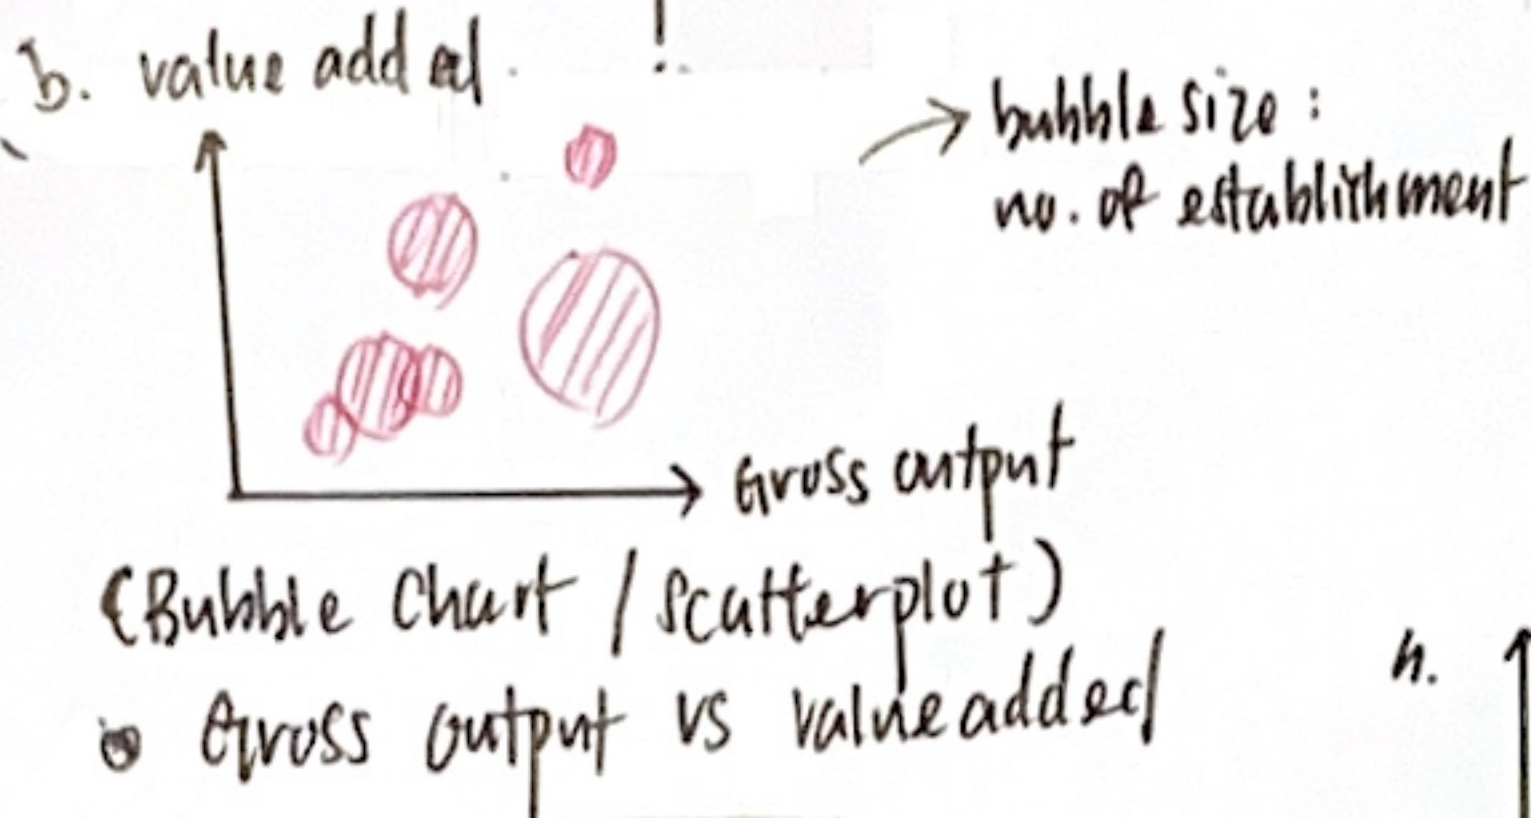 b. value added.
bubble size :
no. of establishment
Gross output
(Bubble Chart / scatterplot)
Gross output vs value added
h.